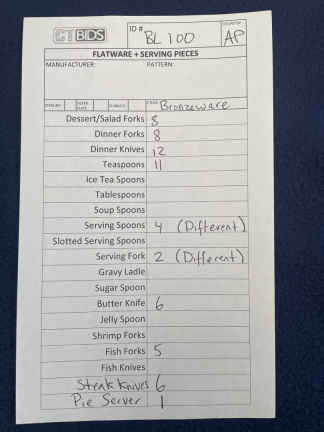 CT BIDS
ID # BL 100 AP
FLATWARE + SERVING PIECES
MANUFACTURER: PATTERN:
Bronzeware
Dessert/Salad Forks 8
Dinner Forks 8
Dinner Knives 12
Teaspoons 11
Ice Tea Spoons
Tablespoons
Soup Spoons
Serving Spoons 4 (Different)
Slotted Serving Spoons
Serving Fork 2 (Different)
Gravy Ladle
Sugar Spoon
Butter Knife 6
Jelly Spoon
Shrimp Forks
Fish Forks 5
Fish Knives
Steak Knives 6
Pie Server 1